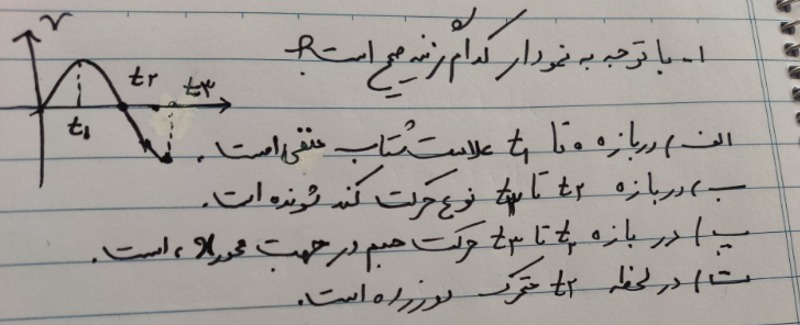 ۱- با توجه به نمودار کدام گزینه صحیح است؟
v
t۲
t۳
t۱
الف) در بازه ۰ تا t۱ علامت شتاب منفی است.
ب) در بازه t۲ تا t۳ نوع حرکت کند شونده است.
پ) در بازه t۱ تا t۳ حرکت جسم در جهت محور x است.
ت) در لحظه t۲ متحرک
است.